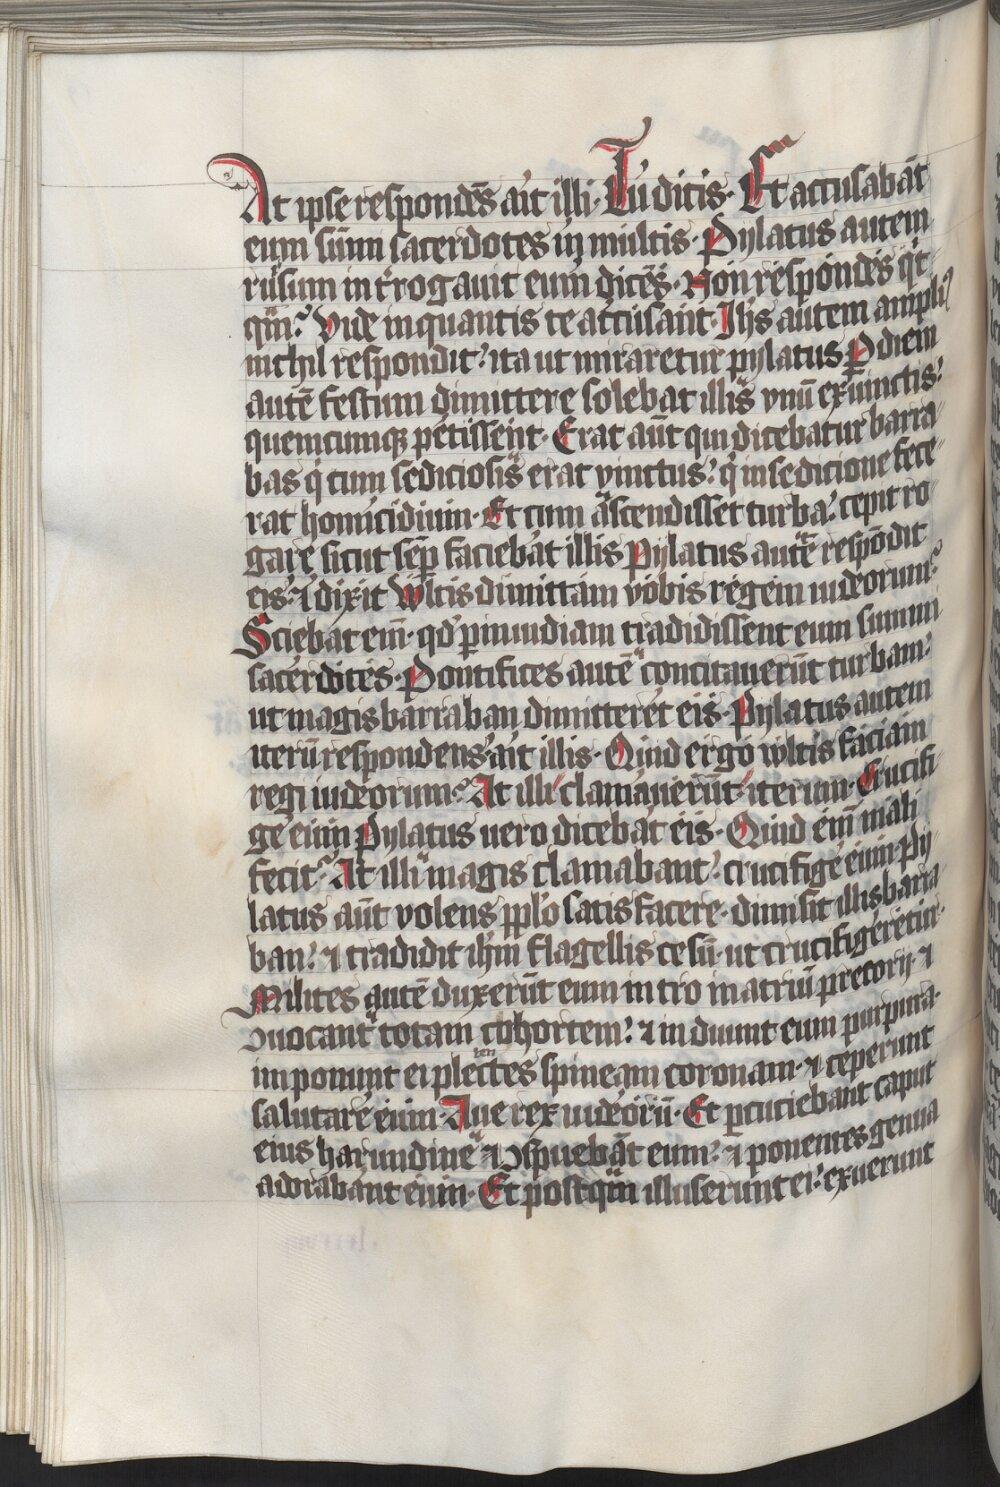 At ipse respondēs ait illi· Tu dicis· Et accusabāt
eum sūmi sacerdotes in multis· Pylatus autem
rursum introgauit eum dicēs· Non respondes q't
qm̄? Vide in quantis te accusant· Ihs autem ampli9
nichil respondit: ita ut miraretur pylatus ꝑ diem
autē festum dimittere solebat illis vnū ex vinctis:
quemcumqꝫ petissent· Erat aūt qui dicebatur barra
bas q cum sediciosis erat vinctus: q in sedicione fece
rat homicidium· Et cum ascendisset turba: cepit ro
gare sicut semp faciebat illis Pylatus autē respōdit
eis: ⁊ dixit Wltis dimittam vobis regem iudeorum?
Sciebat em̄· qd' ꝑ inuidiam tradidissent eum summi
sacerdotes· Pontifices autē concitauerūt turbam:
ut magis barraban dimitteret eis· Pylatus autem
iterū respondens: ait illis· Quid ergo wltis faciam
regi iudeorum? At illi clamauerūt iterum· Crucifi
ge eum Pylatus uero dicebat eis· Quid em̄ mali
fecit? At illi magis clamabant: crucifige eum Py
latus aūt volens pplo satisfacere· dimisit illis barra
ban: ⁊ tradidit ihm flagellis cesū· ut crucifigeretur·
Milites autē duxerūt eum intro in atriū pretorij ⁊
ↄuocant totam cohortem: ⁊ induunt eum purpura·
imponunt ei plectentes spineam coronam· ⁊ ceperunt
salutare eum· Aue rex iudeorū· Et ꝑcuciebant caput
eius harundine ⁊ ↄspuebāt eum: ⁊ ponentes genua
adorabant eum· Et postqm illuserunt ei: exuerunt